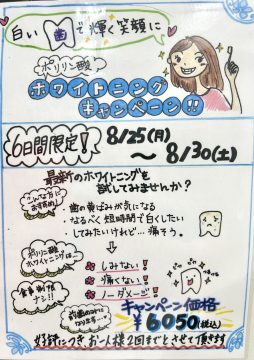 白い歯で輝く笑顔に
ポリリン酸
ホワイトニング
キャンペーン!!
6日間限定!
8/25(月)
～8/30(土)
最新のホワイトニングを
試してみませんか?
こんな方に
おすすめ!
・歯の黄ばみが気になる
・なるべく短時間で白くしたい
・してみたいけれど…痛そう。
ポリリン酸
ホワイトニングは…
しみない!
痛くない!
ノーダメージ!
食事制限
ナシ!!
前歯のみに
なります
キャンペーン価格
¥6050(税込)
好評につきお一人様2回までとさせて頂きます